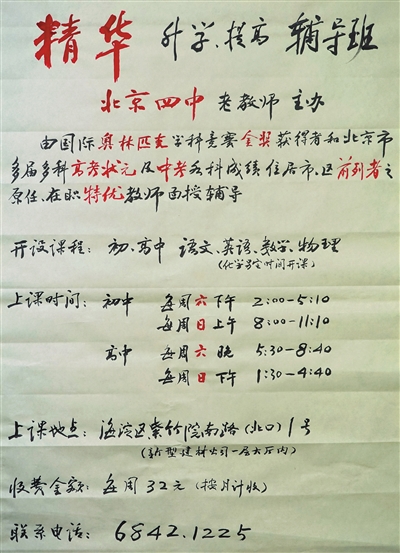 精华 升学、提高 辅导班
北京四中 老教师 主办
由国际奥林匹克学科竞赛金奖获得者和北京市
多届多科高考状元及中考各科成绩位居市、区前列者之
原任、在职特优教师面授辅导
开设课程: 初、高中 语文、英语、数学、物理
(化学另定时间开课)
上课时间: 初中 每周六下午 2:00-5:10
每周日上午 8:00-11:10
高中 每周六晚 5:30-8:40
每周日下午 1:30-4:40
上课地点: 海淀区紫竹院南路(北口)1号
(新型建材公司一层大厅内)
收费金额: 每周32元(按月计收)
联系电话: 6842.1225